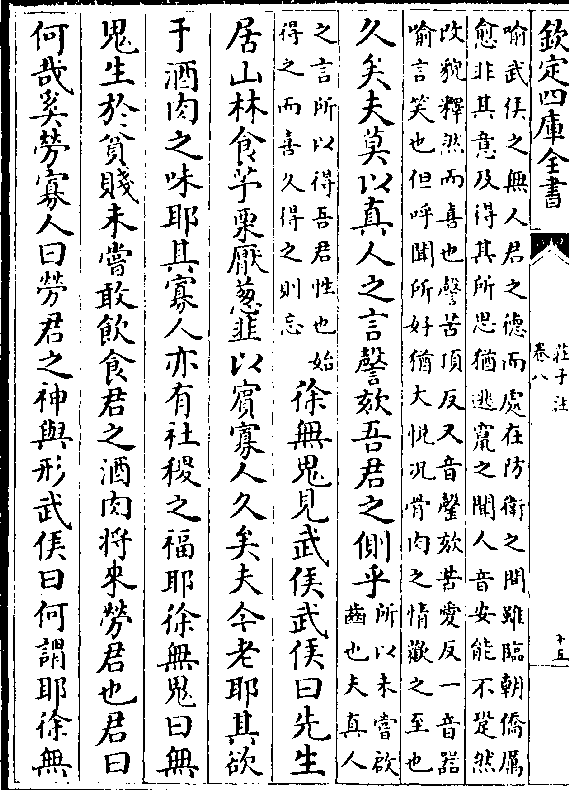 欽定四庫全書
莊子注
卷八
十五
喻武侯之無人君之德而處在防衛之間雖臨朝僑厲
愈非其意及得其所思猶逃竄之聞人音安能不跫然
改貌釋然而喜也謦苦頂反又音罄欬苦愛反一音器
喻言笑也但呼聞所好猶大恱况骨肉之情歡之至也
久矣夫莫以真人之言謦欬吾君之側乎
所以未嘗啟
齒也夫真人
之言所以得吾君性也始
得之而喜久得之則忘
徐無鬼見武侯武侯曰先生
居山林食芧栗厭葱韭以賔寡人久矣夫今老耶其欲
干酒肉之味耶其寡人亦有社稷之福耶徐無鬼曰無
鬼生於貧賤未嘗敢飲食君之酒肉将來勞君也君曰
何哉奚勞寡人曰勞君之神與形武侯曰何謂耶徐無